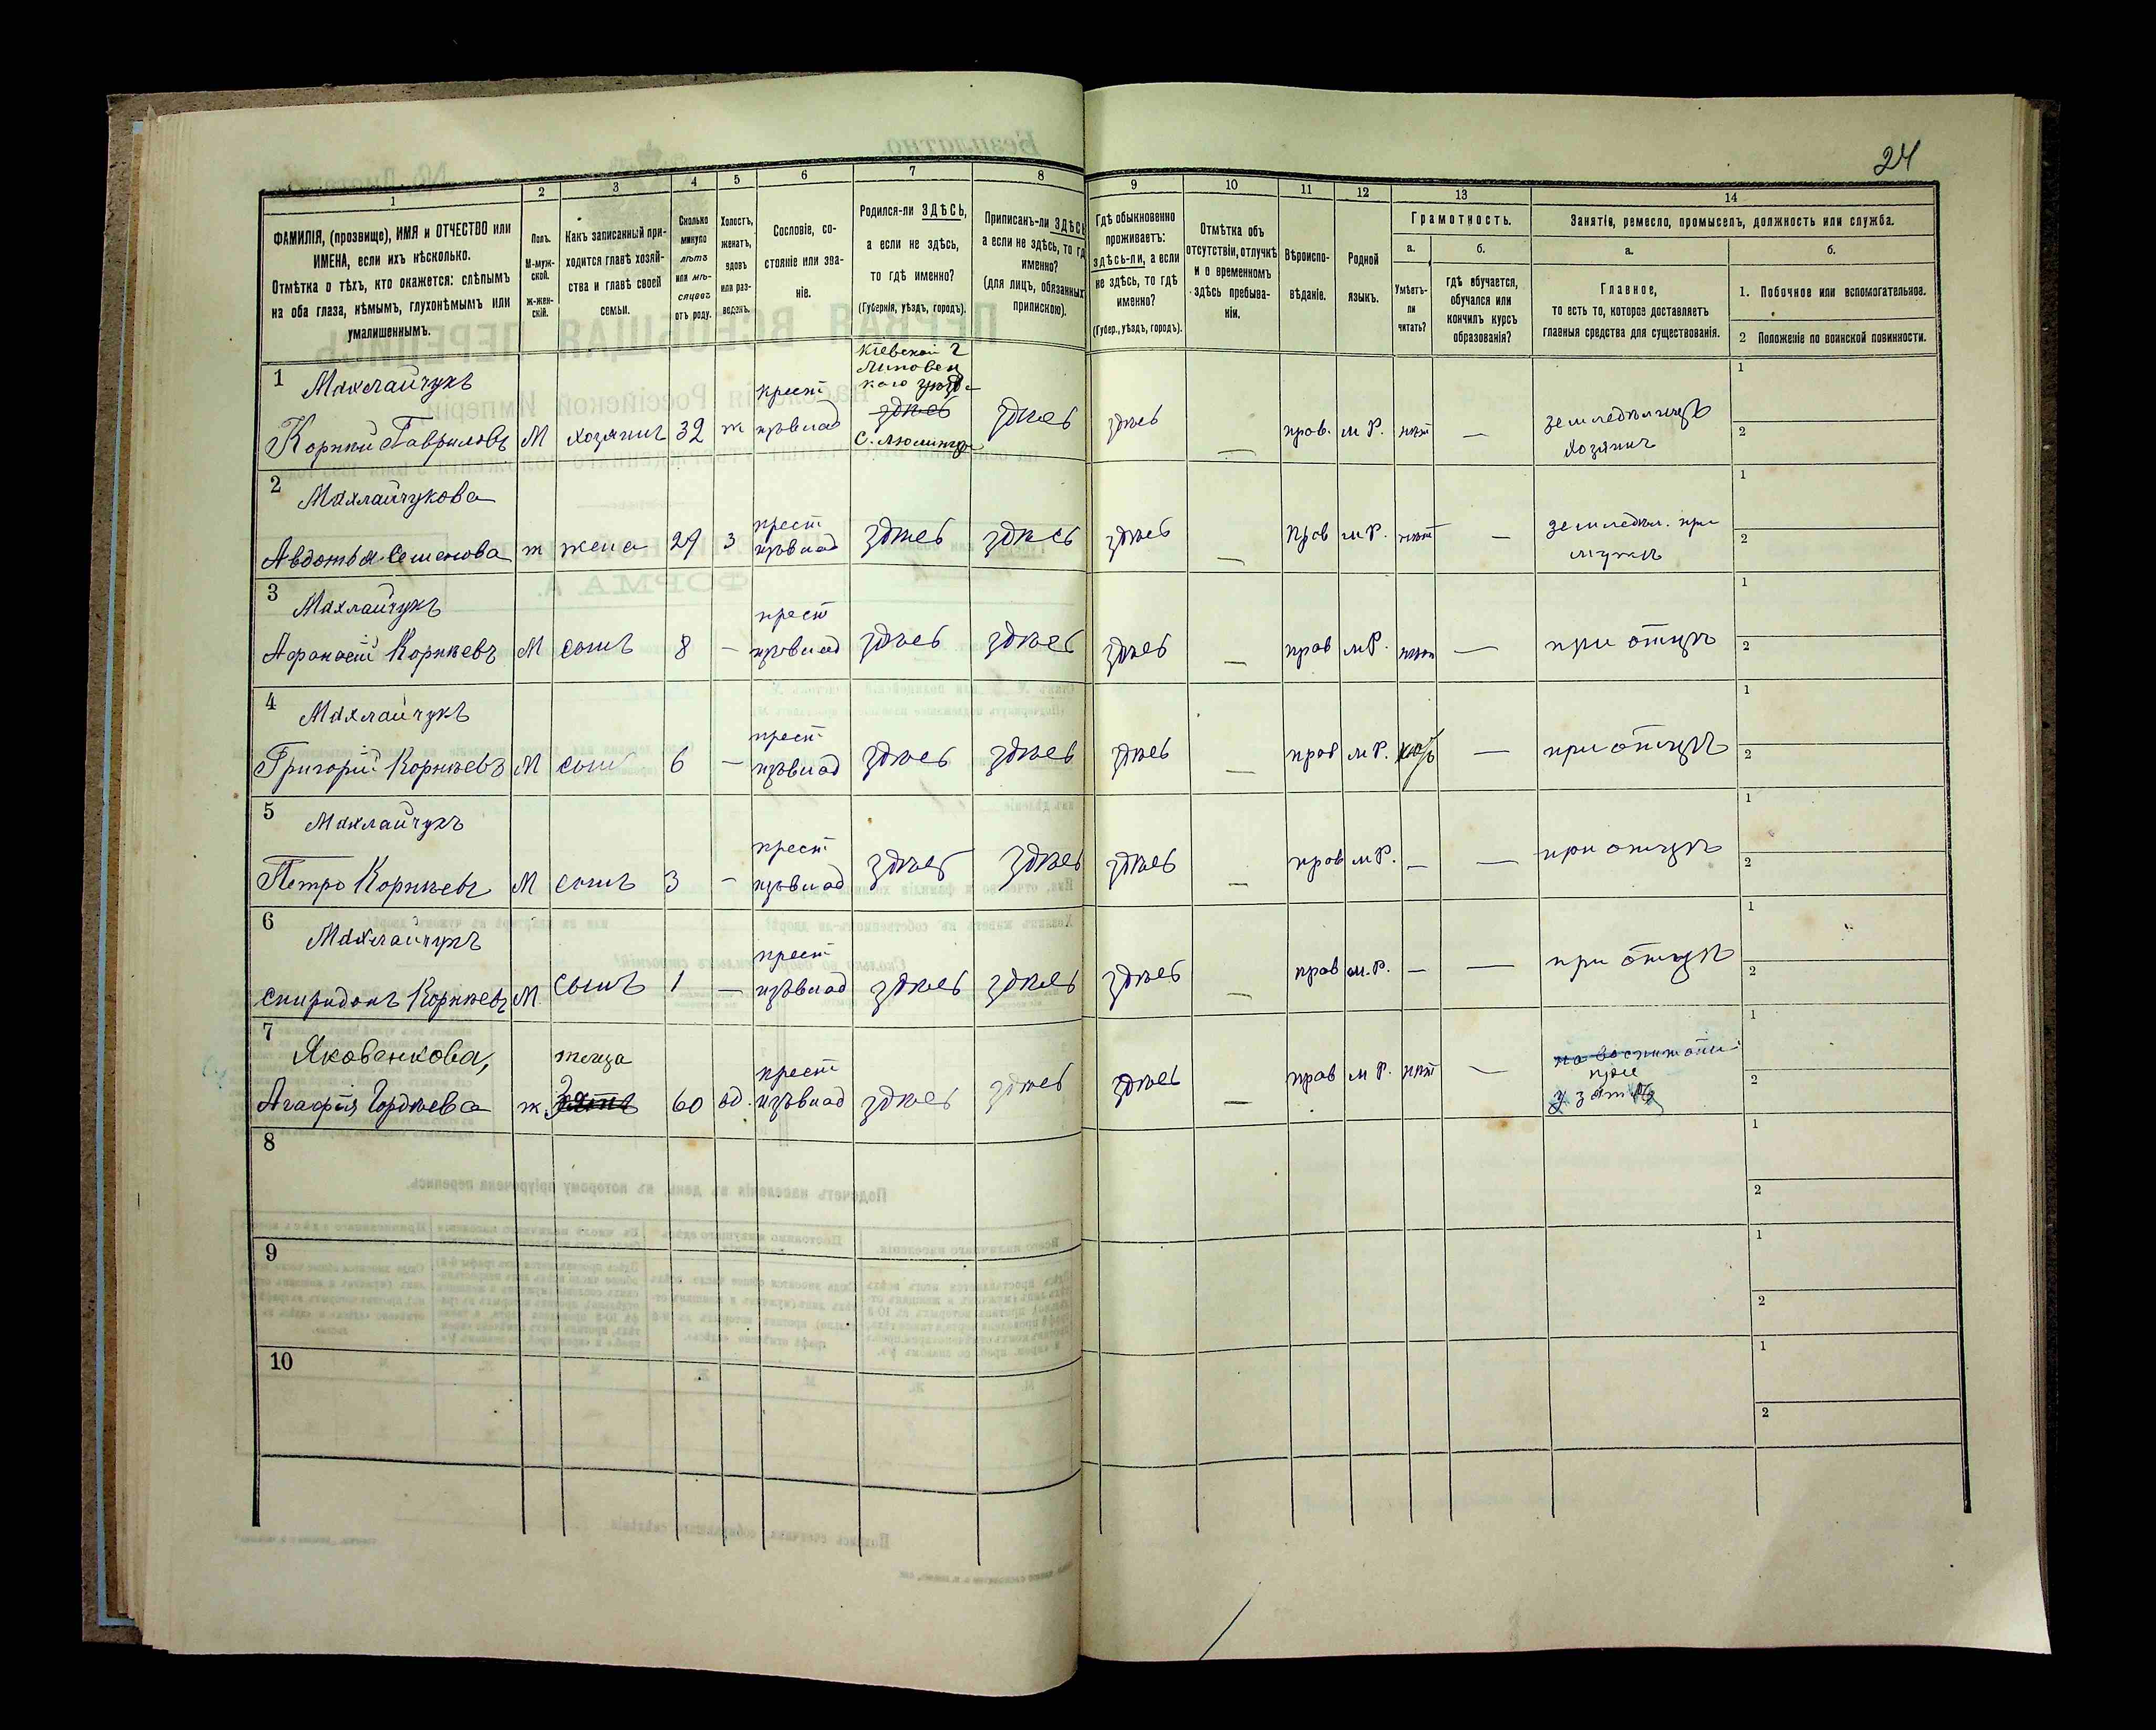 24
1
2
3
4
5
6
7
8
9
10
11
12
13
14
ФАМИЛІЯ, (прозвище), ИМЯ и ОТЧЕСТВО или
ИМЕНА, если ихъ нѣсколько.
Отмѣтка о тѣхъ, кто окажется: слѣпымъ
на оба глаза, нѣмымъ, глухонѣмымъ или
умалишеннымъ.
Полъ.
М-муж-
ской.
ж-жен-
скій.
Какъ записанный при-
ходится главѣ хозяй-
ства и главѣ своей
семьи.
Сколько
минуло
лѣтъ
или мѣ-
сяцевъ
отъ роду.
Холостъ,
женатъ,
вдовъ
или раз-
веденъ.
Сословіе, со-
стояніе или зва-
ніе.
Родился-ли ЗДѢСЬ,
а если не здѣсь,
то гдѣ именно?
(Губернія, уѣздъ, городъ).
Приписанъ-ли ЗДѢСЬ
а если не здѣсь, то гдѣ
именно?
(для лицъ, обязанныхъ
припискою).
Гдѣ обыкновенно
проживаетъ:
здѣсь-ли, а если
не здѣсь, то гдѣ
именно?
(Губер., уѣздъ, городъ).
Отмѣтка объ
отсутствіи, отлучкѣ
и о временномъ
здѣсь пребыва-
ніи.
Вѣроиспо-
вѣданіе.
Родной
языкъ.
Грамотность.
а.
Умѣетъ-
ли
читать?
б.
гдѣ обучается,
обучался или
кончилъ курсъ
образованія?
Занятія, ремесло, промыселъ, должность или служба.
а.
Главное,
то есть то, которое доставляетъ
главныя средства для существованія.
б.
1. Побочное или вспомогательное.
2 Положеніе по воинской повинности.
1 Махлайчукъ
Корнѣй Гавриловъ М хозяинъ 32 ж
крест
изъ влад
Кіевской г
Липовец
каго уѣзда
здѣсь
здѣсь здѣсь — прав. м Р. нѣтъ —
земледѣлецъ
хозяинъ
1
2
2 Махлайчукова
Авдотья Семенова ж жена 29 з
крест
изъ влад
здѣсь здѣсь здѣсь — Прав м Р. нѣтъ —
земледѣл. при
мужѣ
1
2
3 Махлайчукъ
Афанасій Корнѣевъ М сынъ 8 —
крест
изъ влад
здѣсь здѣсь здѣсь — прав м Р. нѣтъ — при отцѣ
1
2
4 Махлайчукъ
Григорій Корнѣевъ М сынъ 6 —
крест
изъ влад
здѣсь здѣсь здѣсь — прав м Р. — при отцѣ
1
2
5 Махлайчукъ
Петро Корнѣевъ М сынъ 3 —
крест
изъ влад
здѣсь здѣсь здѣсь — прав м Р. — — при отцѣ
1
2
6 Махлайчукъ
Спиридонъ Корнѣевъ М. сынъ 1 —
крест
изъ влад
здѣсь здѣсь здѣсь — прав м. Р. — — при отцѣ
1
2
7 Яковенкова,
Агафія Гордѣева ж.
теща
60 вд.
крест
изъ влад
здѣсь здѣсь здѣсь — прав м Р. нѣтъ —
при
зятѣ
1
2
8
1
2
9
1
2
10
1
2